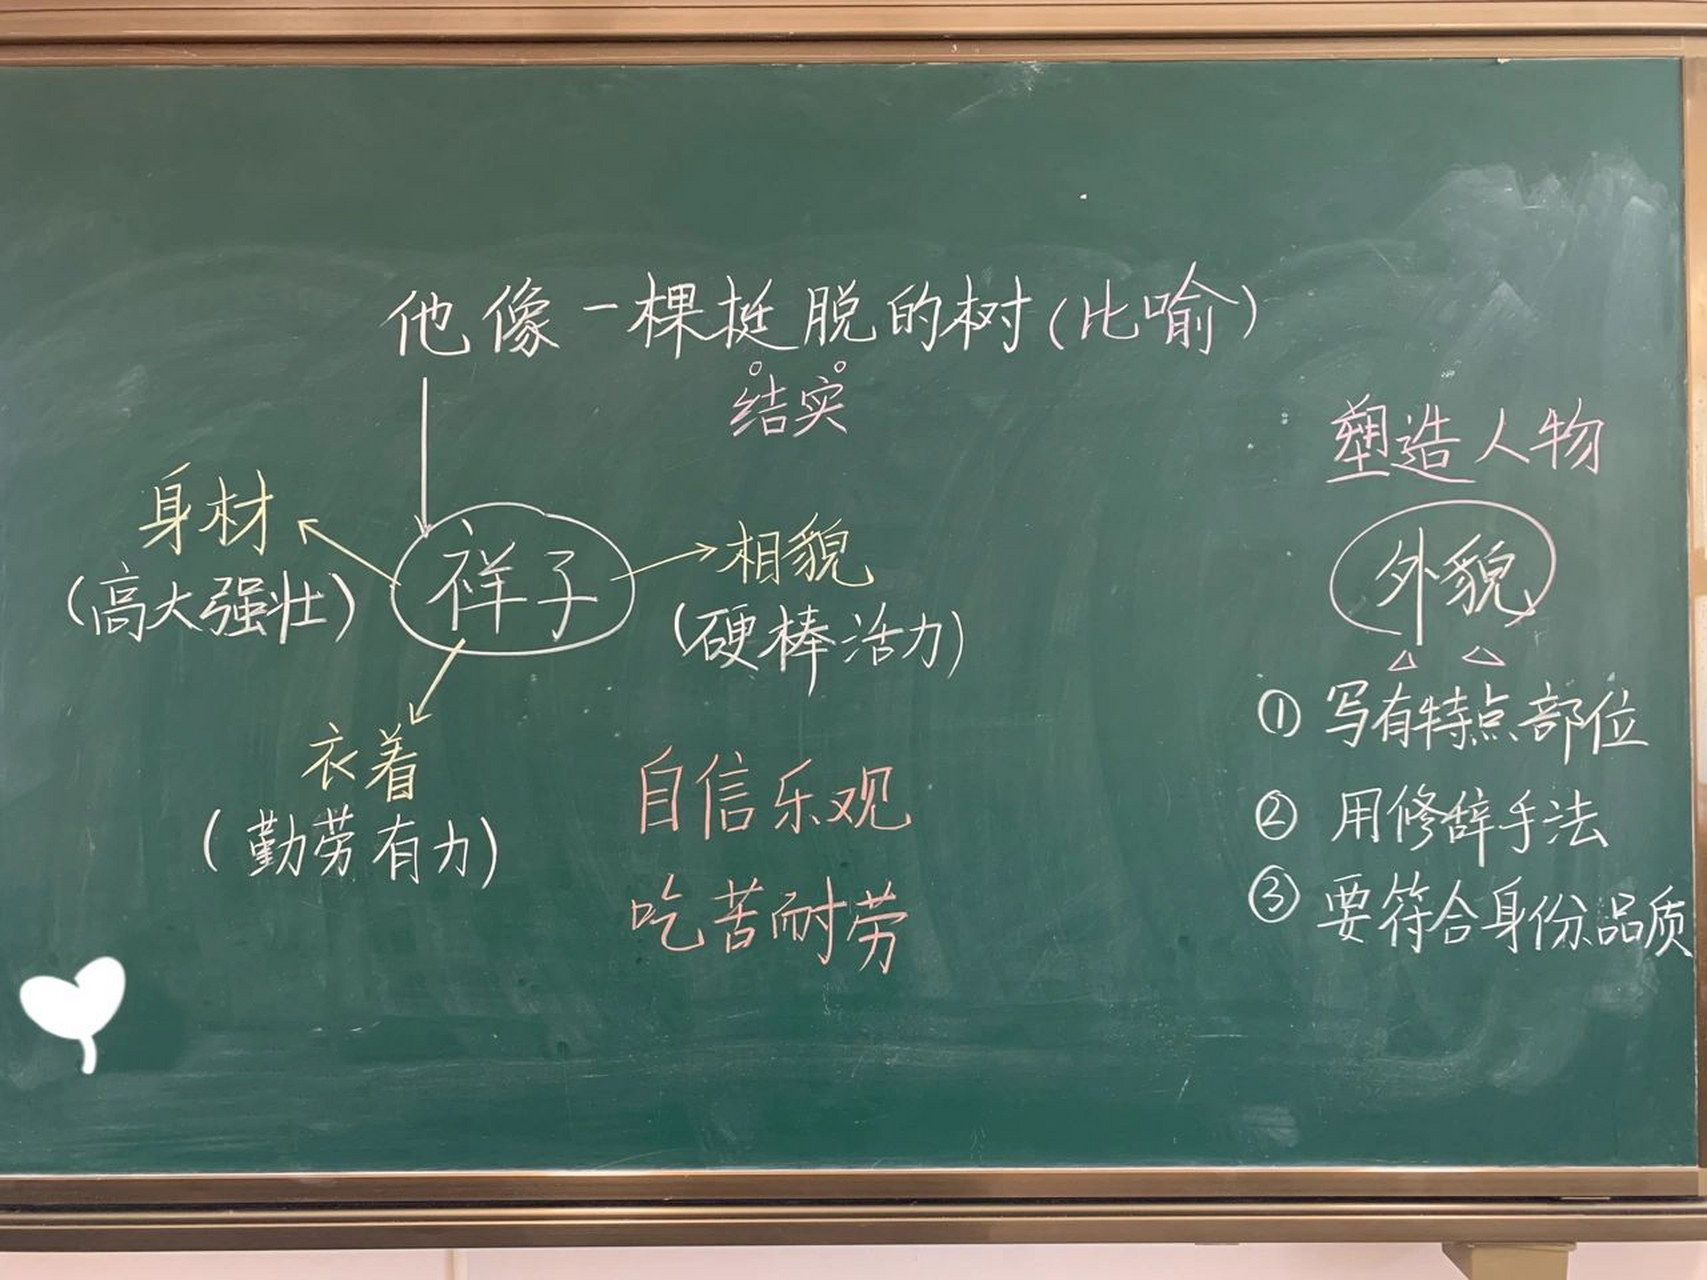 他像一棵挺脱的树(比喻)
结实
身材
(高大强壮)
祥子
相貌
(硬棒活力)
衣着
(勤劳有力)
自信乐观
吃苦耐劳
塑造人物
外貌
① 写有特点部位
② 用修辞手法
③ 要符合身份品质